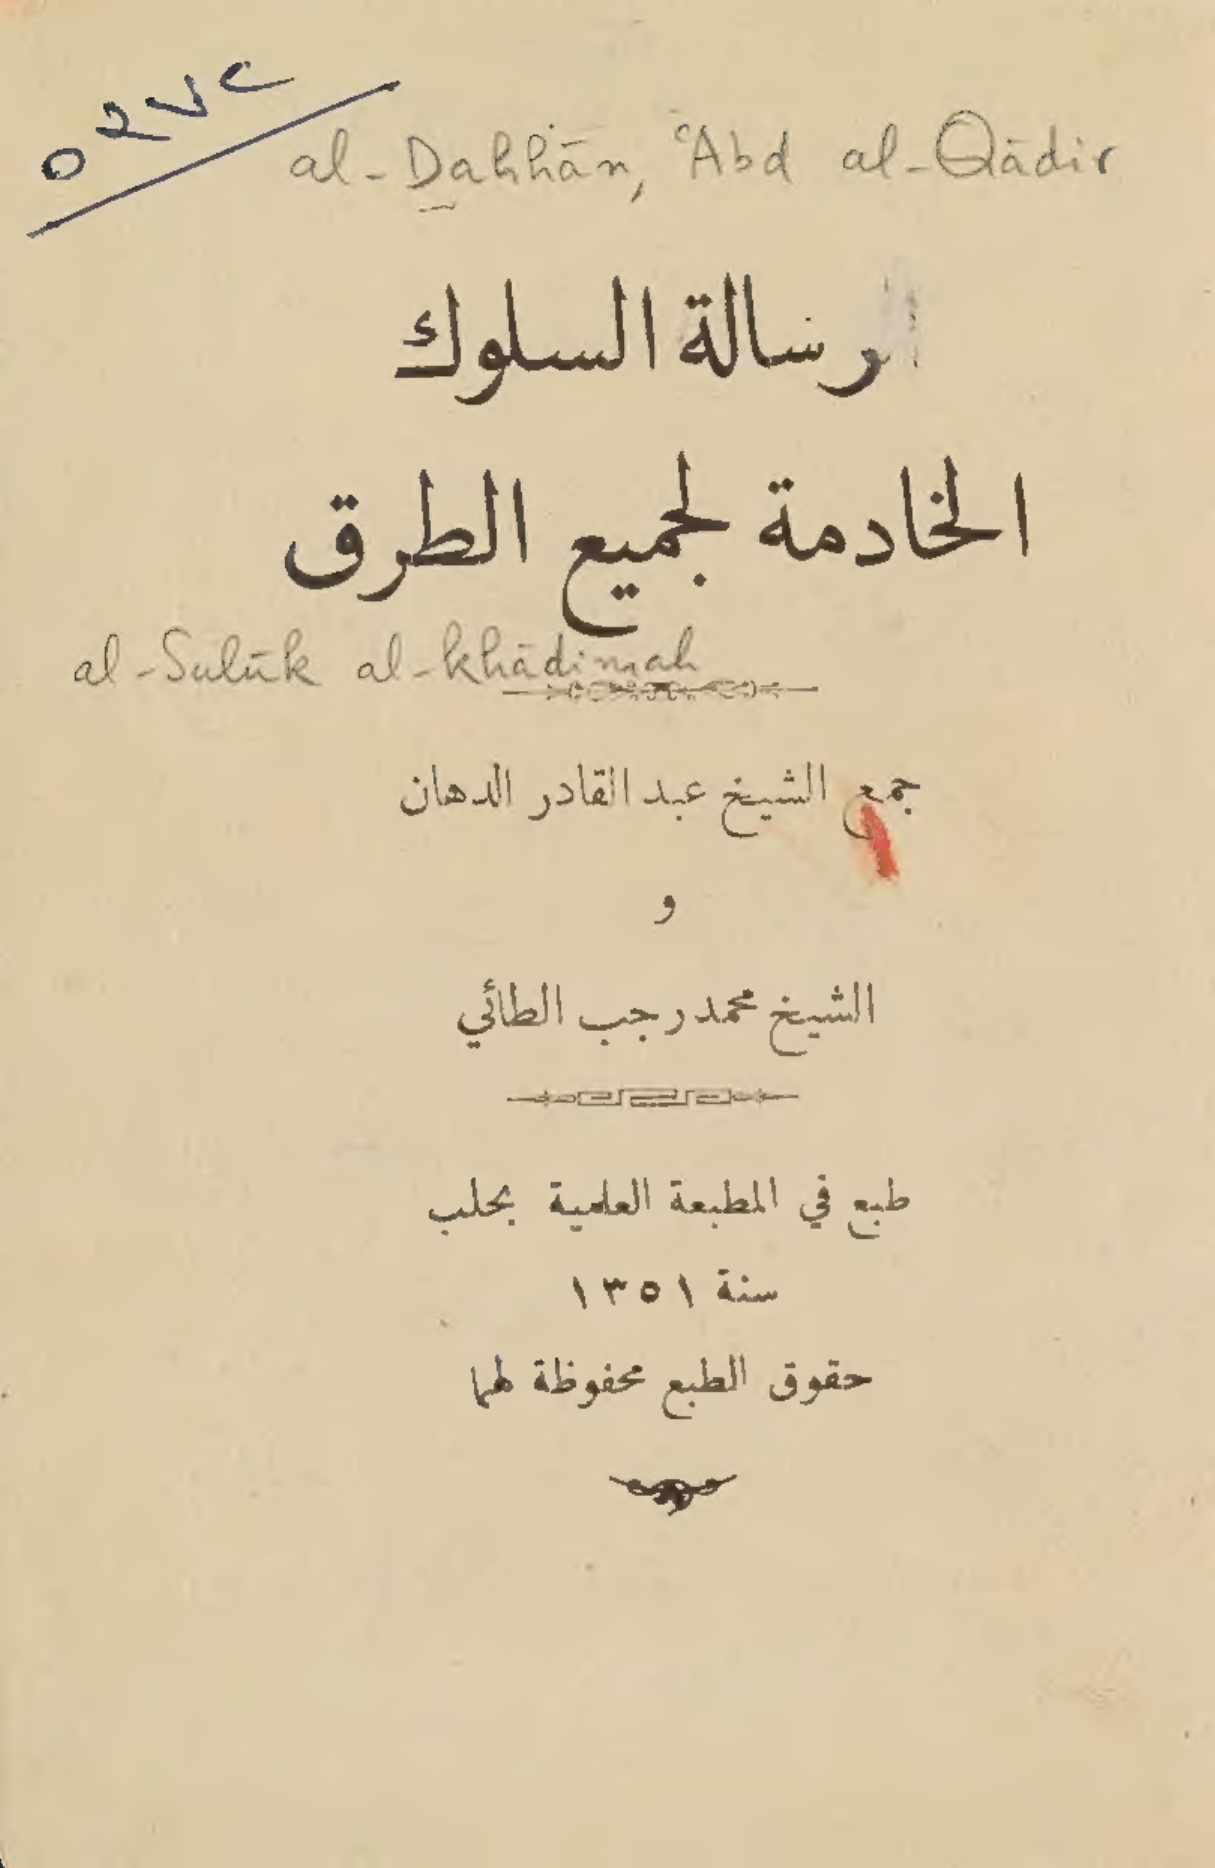 al-Dahhān, ʿAbd al-Qādir
رسالة السلوك
الخادمة لجميع الطرق
al-Sulūk al-khādimah
جمع الشيخ عبد القادر الدهان
و
الشيخ محمد رجب الطائي
طبع في المطبعة العلمية بحلب
سنة ١٣٥١
حقوق الطبع محفوظة لهما